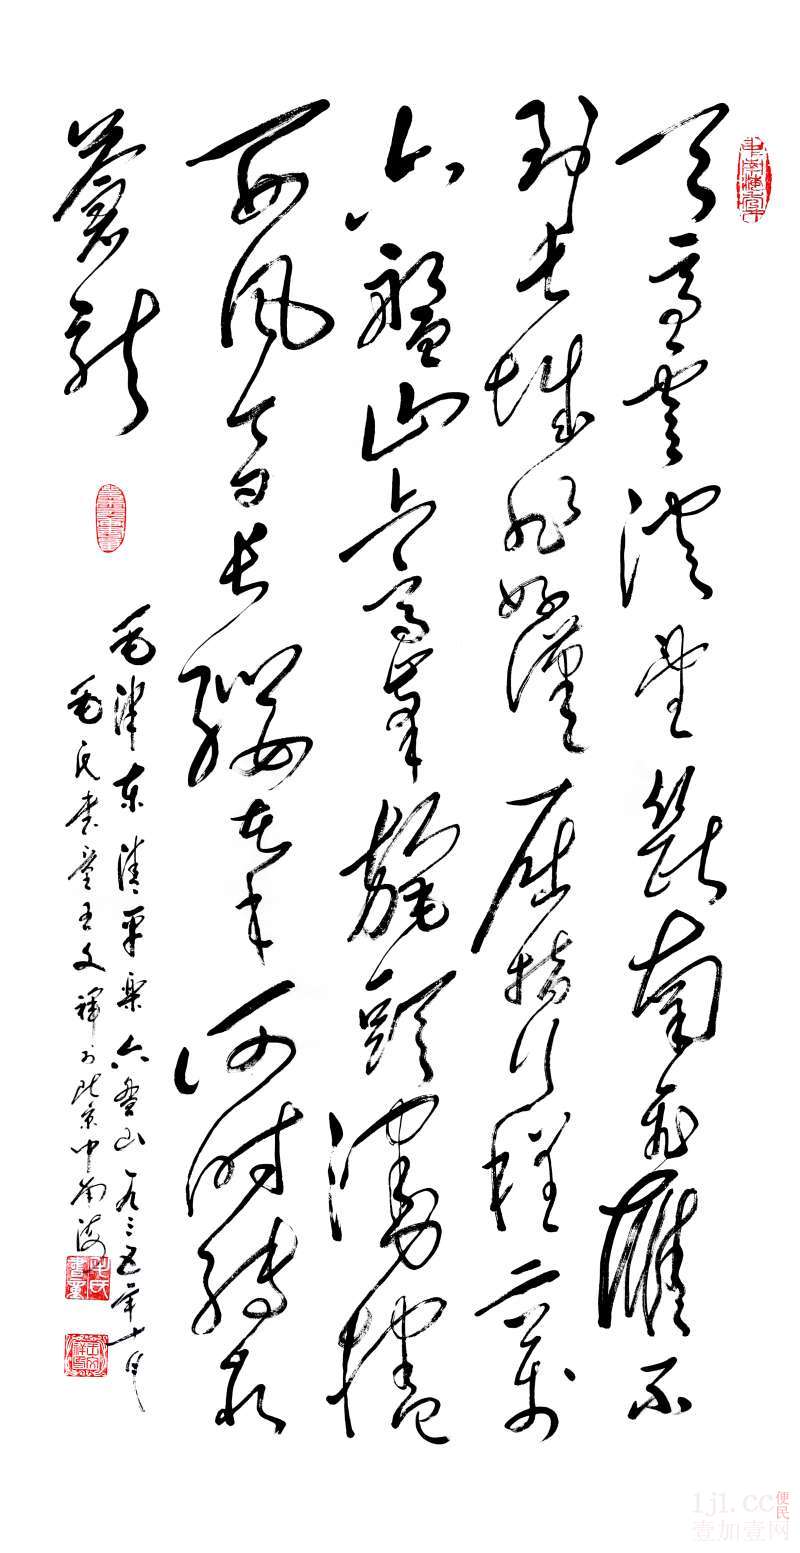 天高雲淡望斷南飛雁不
到長城非好漢屈指行程二萬
六盤山上高峰旄頭漫捲
西風今日長纓在手何時縛住
蒼龍
毛澤東清平樂六盤山一九三五年十月
毛氏書童王文于北京中南海
毛氏書童
1j1.CC便民
壹加壹网